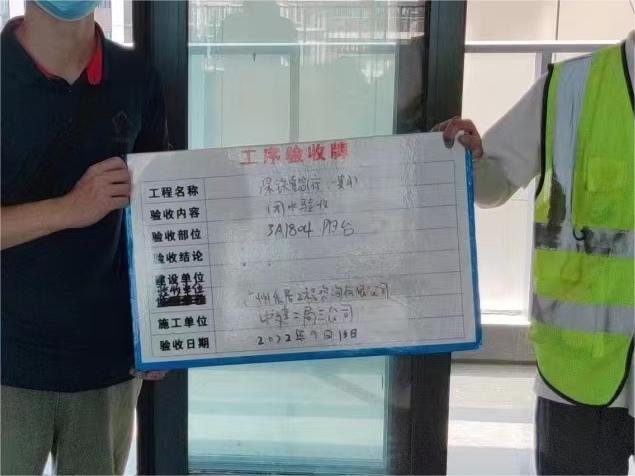 工序验收牌
工程名称
验收内容 闭水验收
验收部位 3A1804 阳台
验收结论
建设单位
验收单位 广州 工程咨询有限公司
施工单位 中建二局三公司
验收日期 2022年9月15日